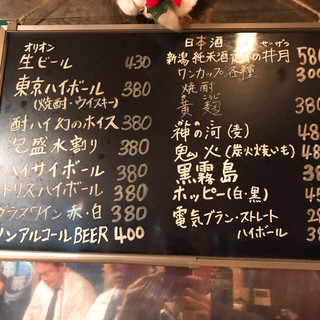 オリオン
生ビール 430
東京ハイボール 380
(焼酎・ウイスキー)
酎ハイ 幻のホイス 380
泡盛水割り 380
ハイサイボール 380
トリスハイボール 380
グラスワイン 赤・白 380
ノンアルコールBEER 400
日本酒
新潟 純米酒 の井月 580
ワンカップ各種 300
焼酎
黄麹
神の河(麦) 48
鬼火(炭火焼いも) 48
黒霧島 38
ホッピー(白・黒) 45
電気ブラン・ストレート 28
ハイボール 38